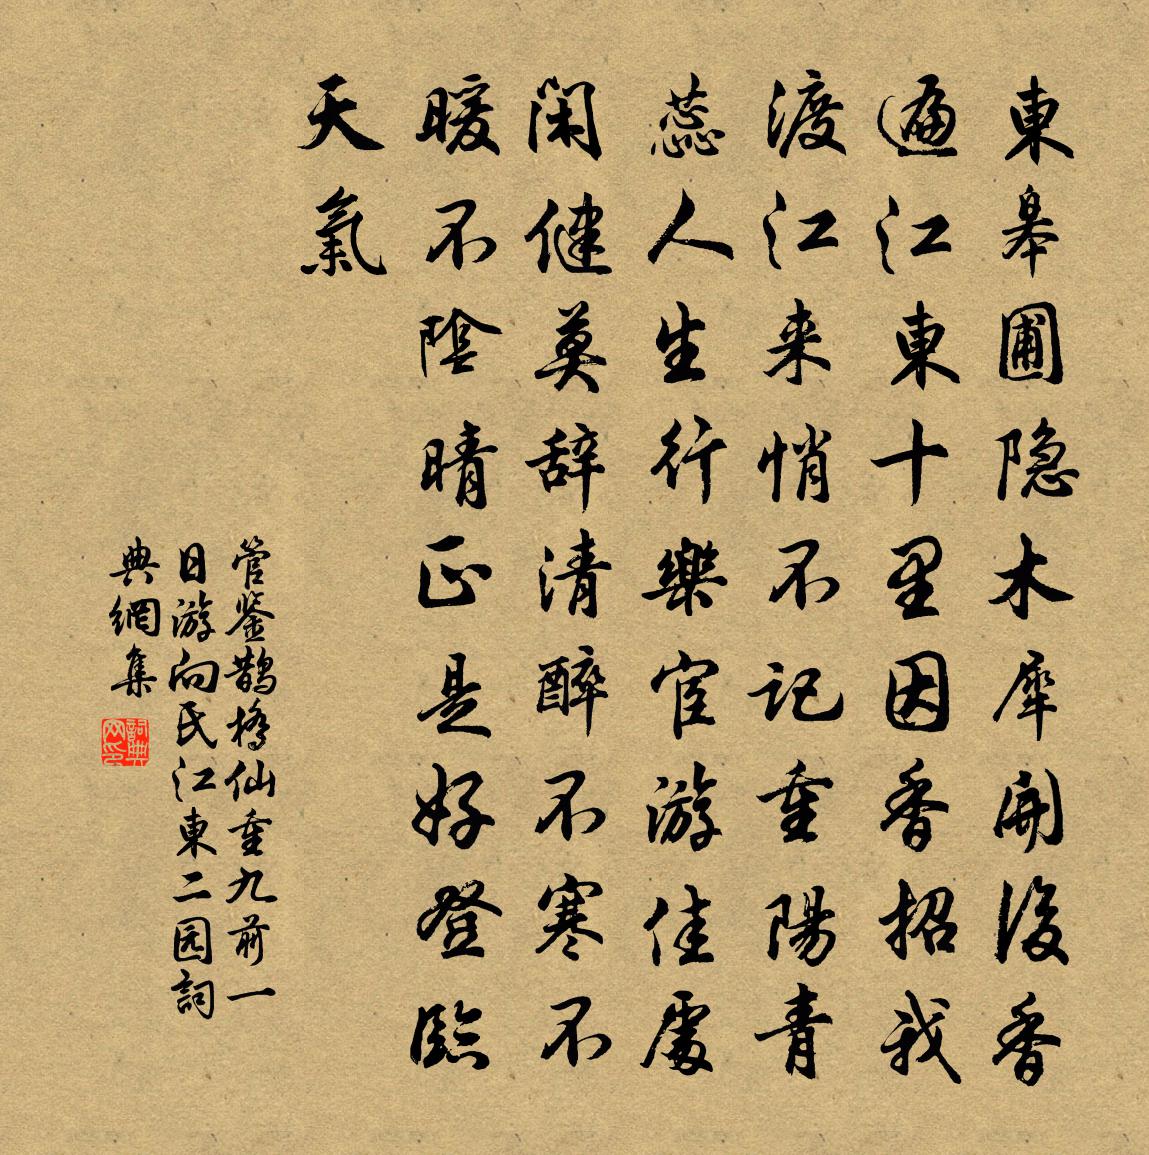 東皋圃隐木犀開後香
遍江東十里因香招我
渡江来悄不記重陽青
蕊人生行樂宦游佳處
閑健莫辞清醉不寒不
暖不陰晴正是好登臨
天氣
管鉴鹊橋仙重九前一
日游向氏江東二园詞
典網集
詞典
网印